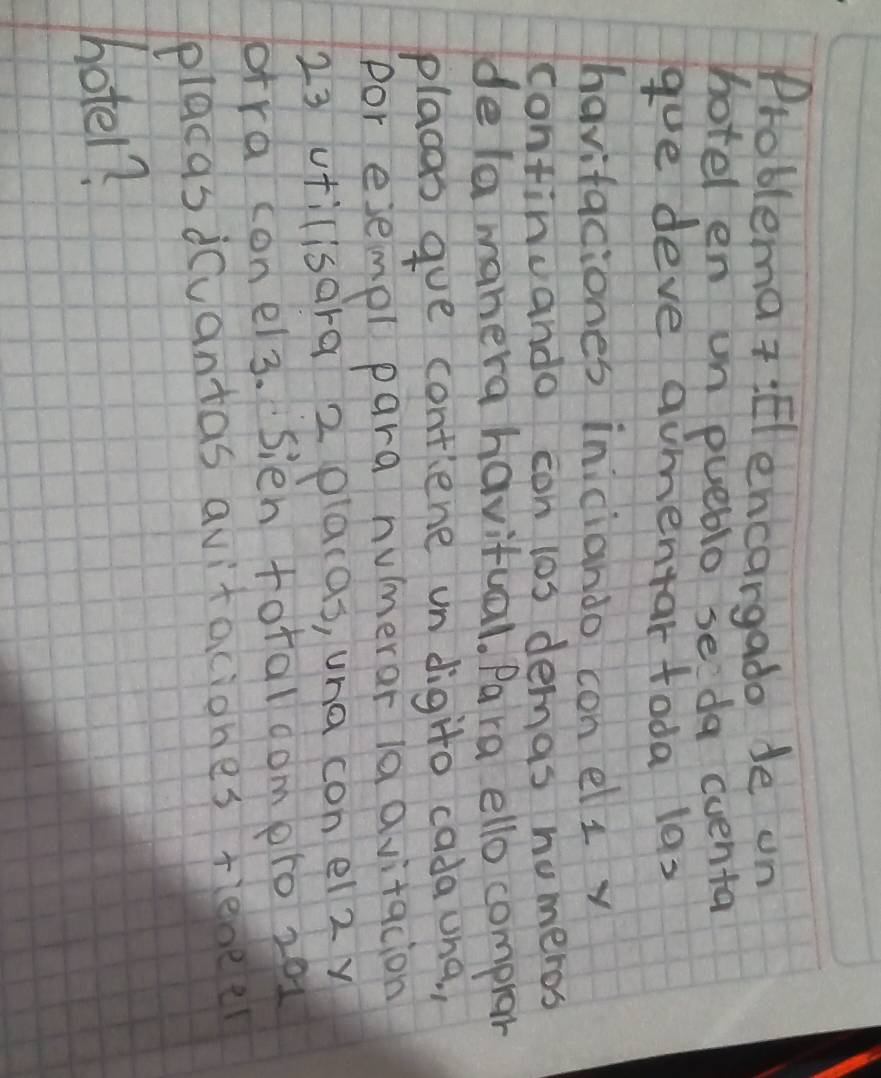 Problema 7: El encargado de un
hotel en un pueblo se da cuenta
que deve aumentar toda las
havitaciones iniciando con el 1 y
continuando con los demas numeros
de la manera havitual. Para ello comprar
placas que contiene un digito cada una,,
por ejempl para numerar la avitacion
23 utilisara 2 placas, una con el 2 y
otra con el 3. Si en total compro 201
placas ¿Cuantas avitaciones tiene el
hotel?